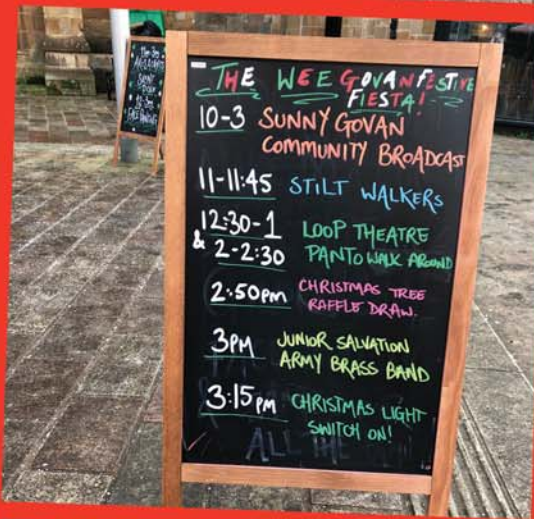 THE WEE GOVAN FESTIVE
FIESTA!
10-3 SUNNY GOVAN
COMMUNITY BROADCAST
11-11:45 STILT WALKERS
12:30-1 LOOP THEATRE
& 2-2:30 PANTO WALK AROUND
2:50pm CHRISTMAS TREE
RAFFLE DRAW.
3PM JUNIOR SALVATION
ARMY BRASS BAND
3:15pm CHRISTMAS LIGHT
SWITCH ON!
ALL THE